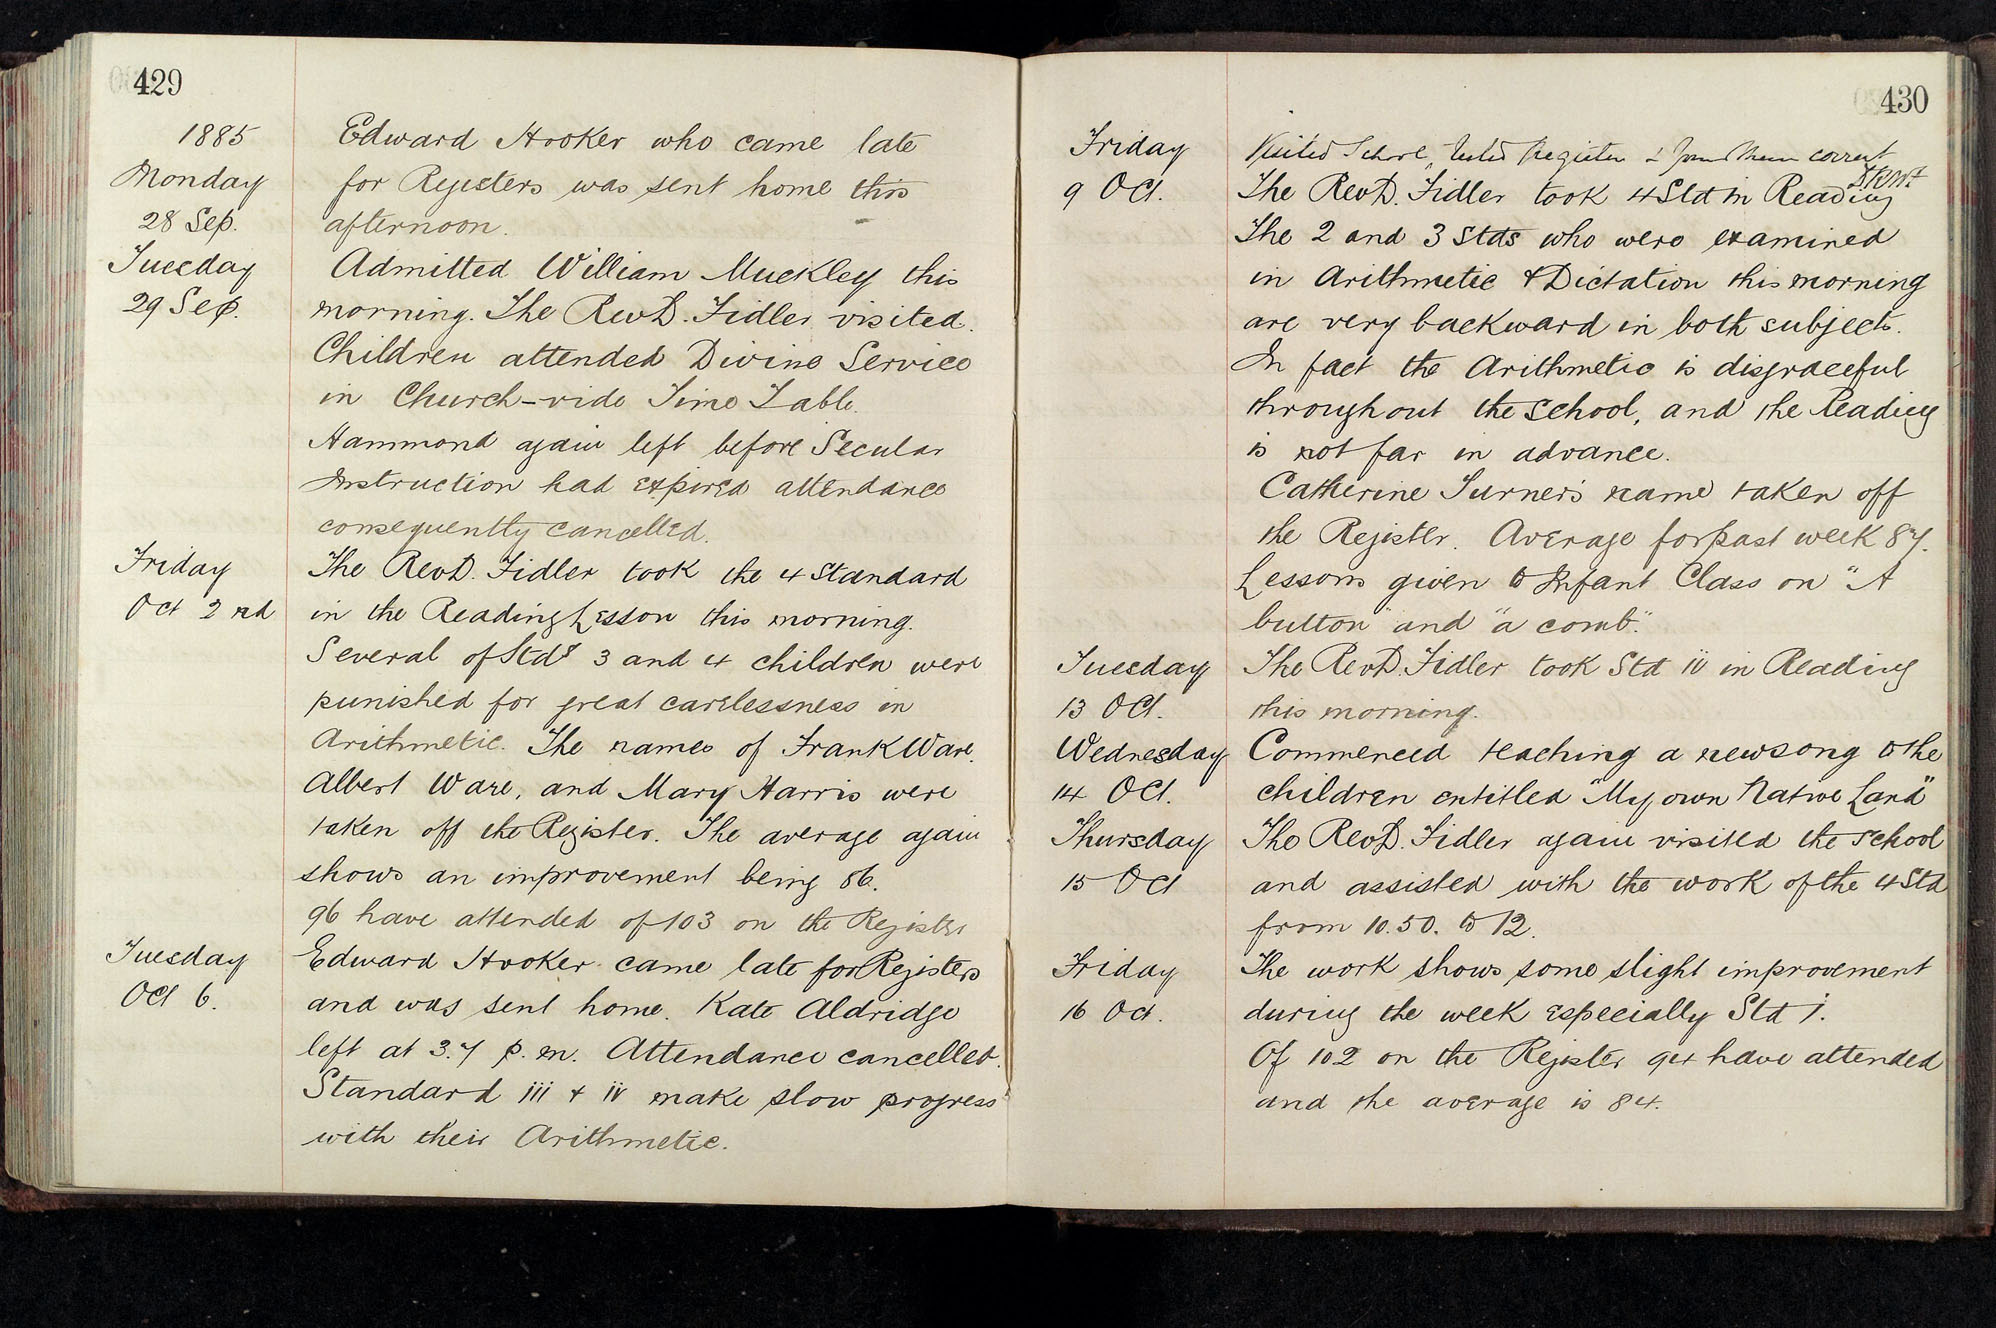 429
1885
Monday
28 Sep.
Edward Hooker who came late
for Registers was sent home this
afternoon.
Tuesday
29 Sep.
Admitted William Muckley this
morning. The RevD. Fidler visited.
Children attended Divine Service
in Church-vide Time Table.
Hammond again left before Secular
Instruction had expired attendance
consequently cancelled.
Friday
Oct 2nd
The RevD. Fidler took the 4 Standard
in the Reading Lesson this morning.
Several of Stds 3 and 4 children were
punished for great carelessness in
Arithmetic. The names of Frank Ware.
Albert Ware, and Mary Harris were
taken off the Register. The average again
shows an improvement being 86.
96 have attended of 103 on the Register
Tuesday
Oct 6.
Edward Hooker came late for Registers
and was sent home. Kate Aldridge
left at 3.7 p.m. Attendance cancelled.
Standard iii & iv make slow progress
with their Arithmetic.
430
Friday
9 Oct.
Visited School, tested Register & found them correct
The RevD. Fidler took 4 Std in Reading
The 2 and 3 Stds who were examined
in Arithmetic & Dictation this morning
are very backward in both subjects.
In fact the Arithmetic is disgraceful
throughout the school, and the Reading
is not far in advance.
Catherine Turner's name taken off
the Register. Average for past week 87.
Lessons given to Infant Class on "A
button" and "a comb".
Tuesday
13 Oct.
The RevD. Fidler took Std iv in Reading
this morning.
Wednesday
14 Oct.
Commenced teaching a new song to the
children entitled "My own Native Land"
Thursday
15 Oct
The RevD. Fidler again visited the school
and assisted with the work of the 4 Std
from 10.50. to 12.
Friday
16 Oct.
The work shows some slight improvement
during the week especially Std i.
Of 102 on the Register 94 have attended
and the average is 84.